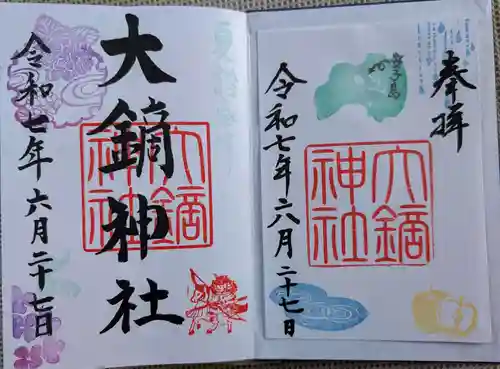 奉拝
大鏑神社
令和七年六月二十七日
大鏑神社
大鏑神社
令和七年六月二十七日